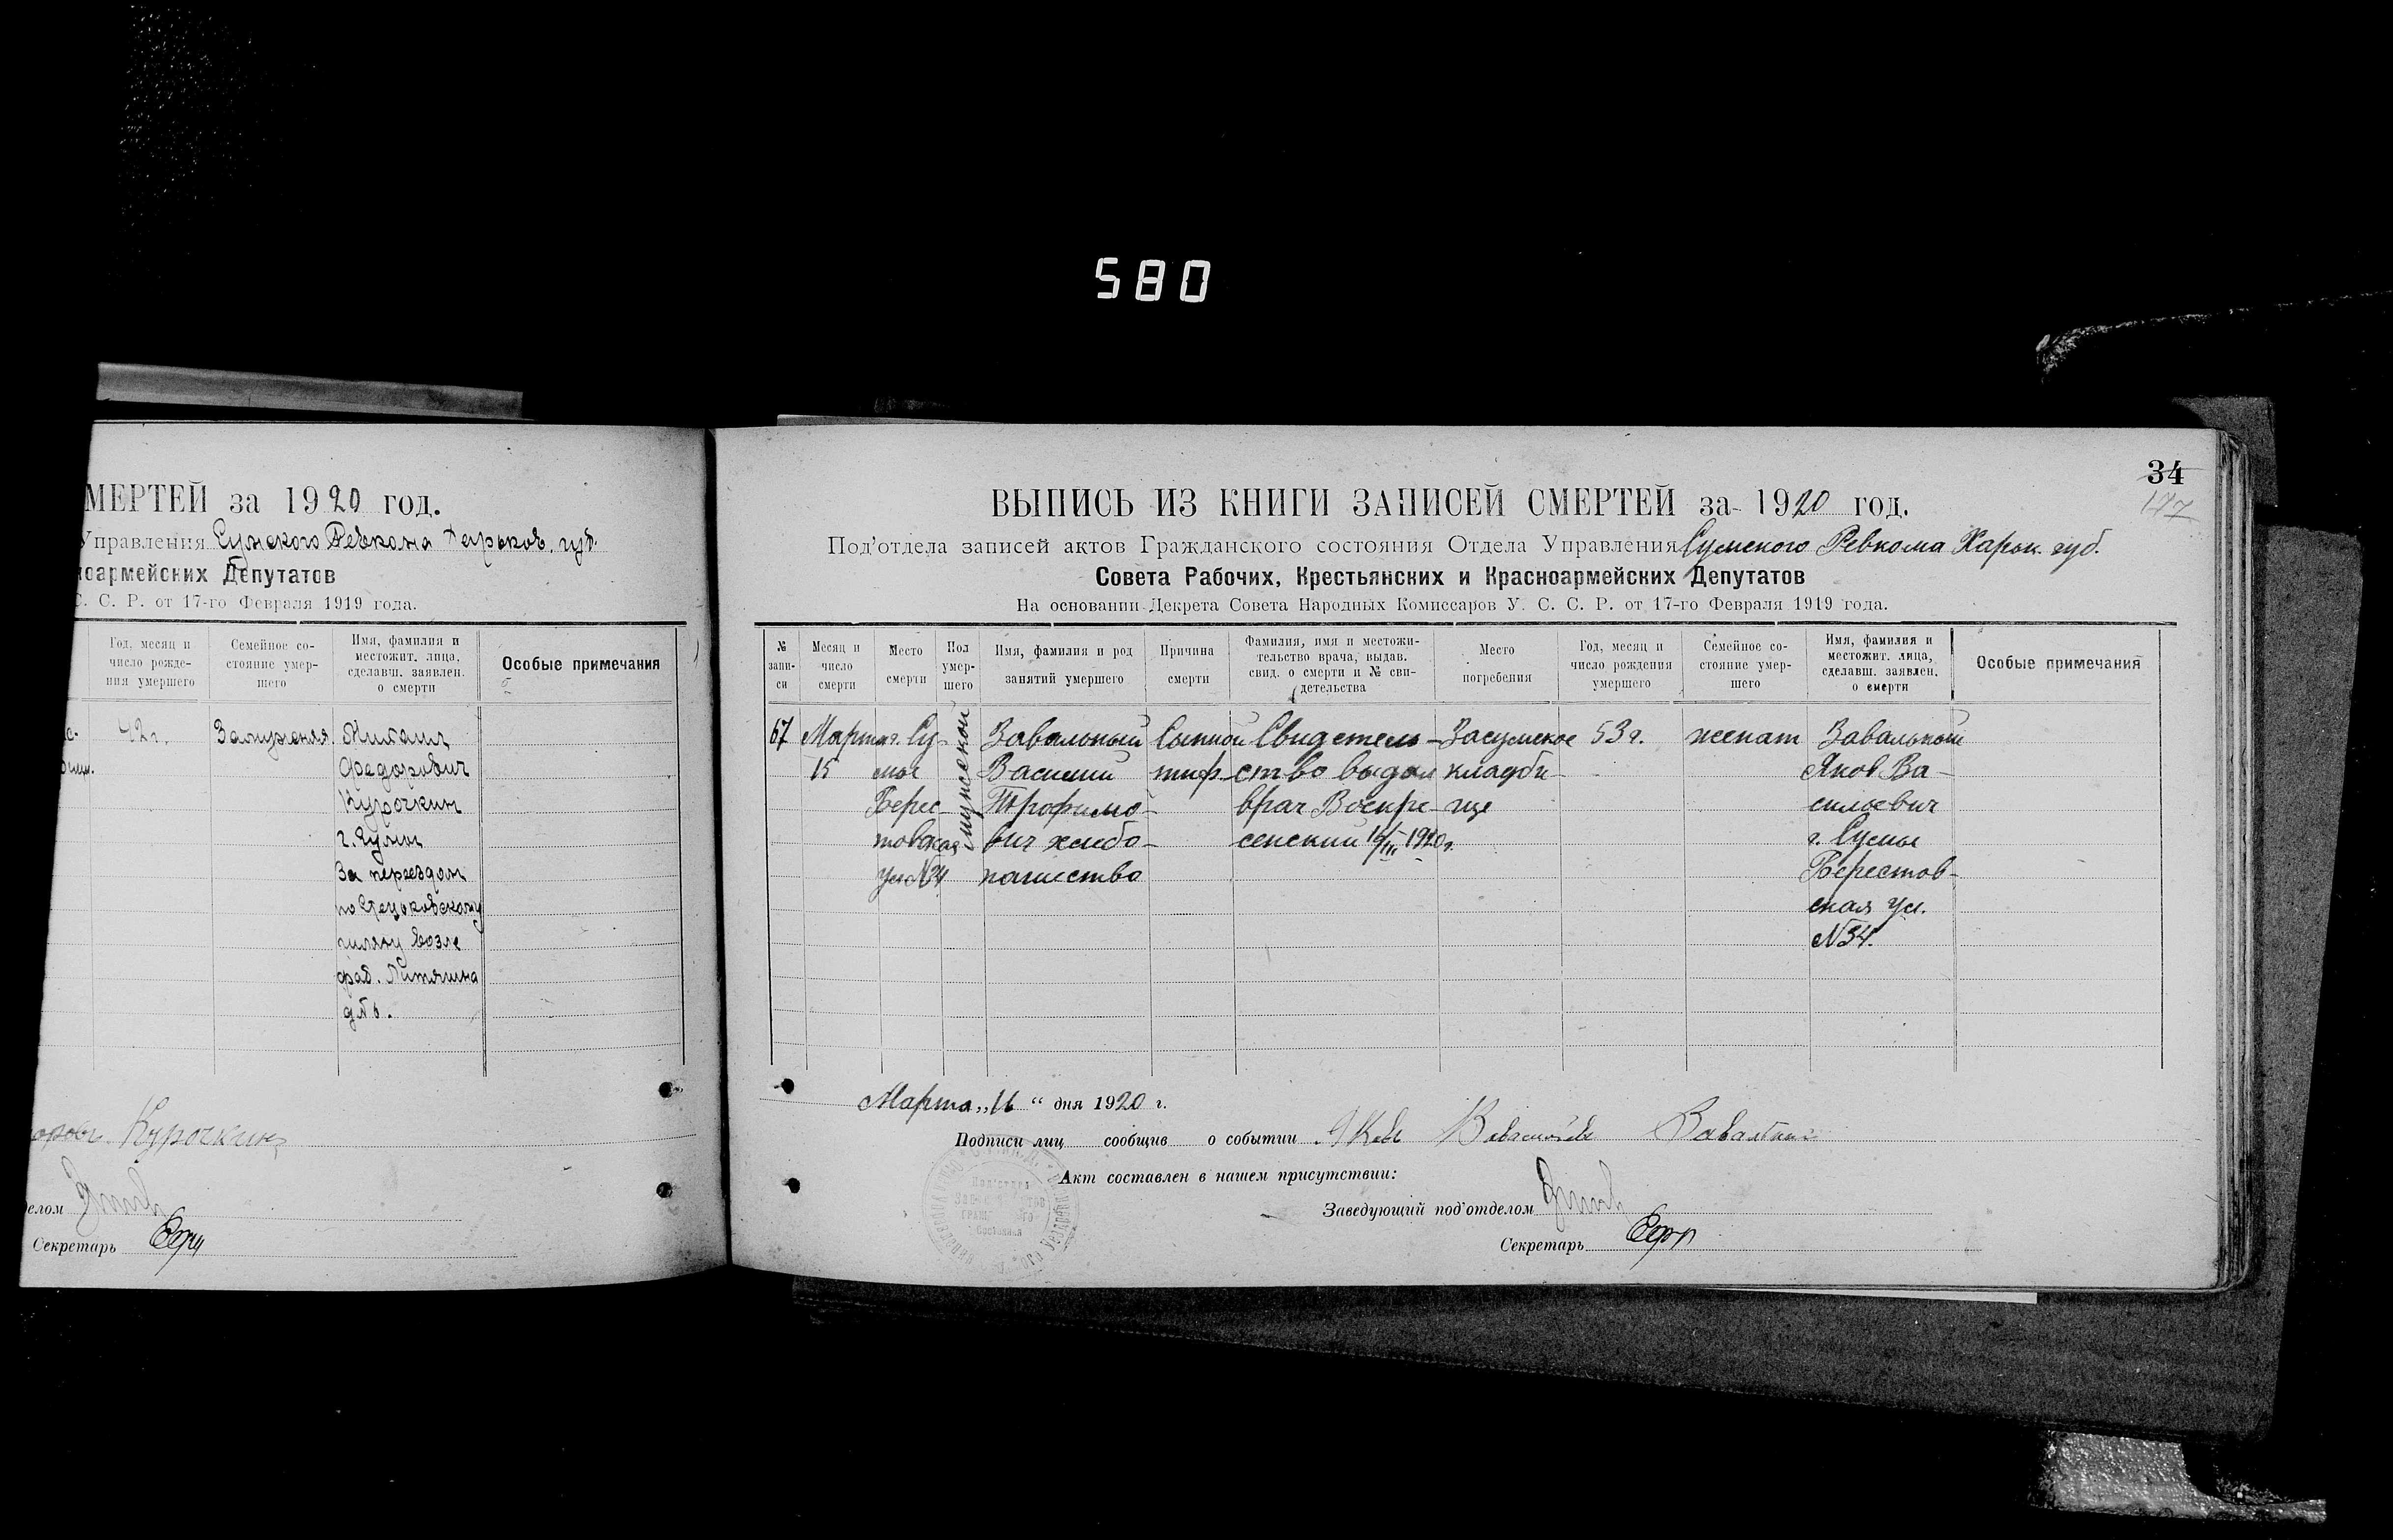 580
МЕРТЕЙ за 1920 год.
Управления Сумского Ревкома Харьков. губ.
ноармейских Депутатов
С. С. Р. от 17-го Февраля 1919 года.
Год, месяц и число рожде-ния умершего
Семейное со-стояние умер-шего
Имя, фамилия и местожит. лица, сделавш. заявлен. о смерти
Особые примечания
42 г.
Замужняя.
Михаил
Федорович
Курочкин
г. Сумы
За переездом
по
шляху возле
фаб.
Курочкин
делом
Секретарь
34
177
ВЫПИСЬ ИЗ КНИГИ ЗАПИСЕЙ СМЕРТЕЙ за 1920 год.
Под'отдела записей актов Гражданского состояния Отдела Управления Сумского Ревкома Харьк. губ.
Совета Рабочих, Крестьянских и Красноармейских Депутатов
На основании Декрета Совета Народных Комиссаров У. С. С. Р. от 17-го Февраля 1919 года.
№ запи-си
Месяц и число смерти
Место смерти
Пол умер-шего
Имя, фамилия и род занятий умершего
Причина смерти
Фамилия, имя и местожи-тельство врача, выдав. свид. о смерти и № сви-детельства
Место погребения
Год, месяц и число рождения умершего
Семейное со-стояние умер-шего
Имя, фамилия и местожит. лица, сделавш. заявлен. о смерти
Особые примечания
67
Марта
15
г. Су-
мы
Берес-
товская
ул №34
мужской
Завальный
Василий
Трофимо-
вич хлебо-
пашество
Сыпной
тиф
Свидетель-
ство выдал
врач Воскре-
сенский 16/III 1920 г.
Засумское
кладби-
ще
53 г.
женат
Завальный
Яков Ва-
сильевич
г. Сумы
Берестов-
ская ул.
№34.
Марта „16“ дня 1920 г.
Подписи лиц сообщив о событии Яков
Акт составлен в нашем присутствии:
Заведующий под'отделом
Секретарь